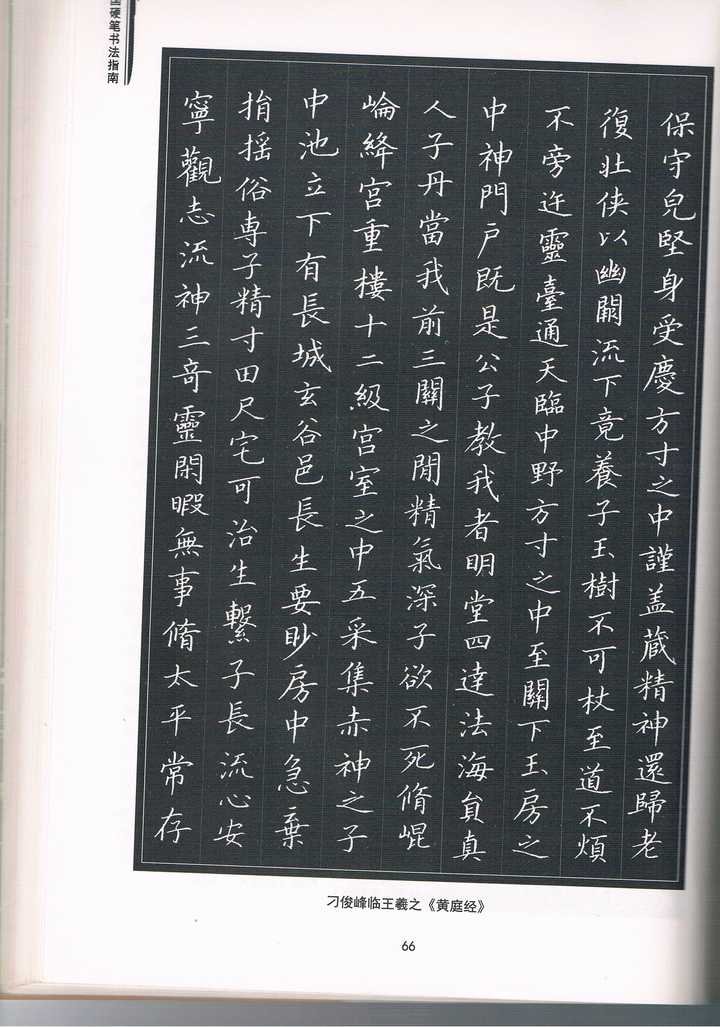 国硬笔书法指南
保守皃堅身受慶方寸之中謹盖蔵精神還歸老
復壯侠以幽闕流下竟養子玉樹不可杖至道不煩
不旁迕靈臺通天臨中野方寸之中至關下玉房之
中神門戶既是公子教我者明堂四達法海負真
人子丹當我前三關之閒精氣深子欲不死脩崐
崘絳宮重樓十二級宫室之中五采集赤神之子
中池立下有長城玄谷邑長生要眇房中急棄
捐摇俗専子精寸田尺宅可治生繫子長流心安
寧觀志流神三竒靈閑暇無事脩太平常存
刁俊峰临王羲之《黄庭经》
66